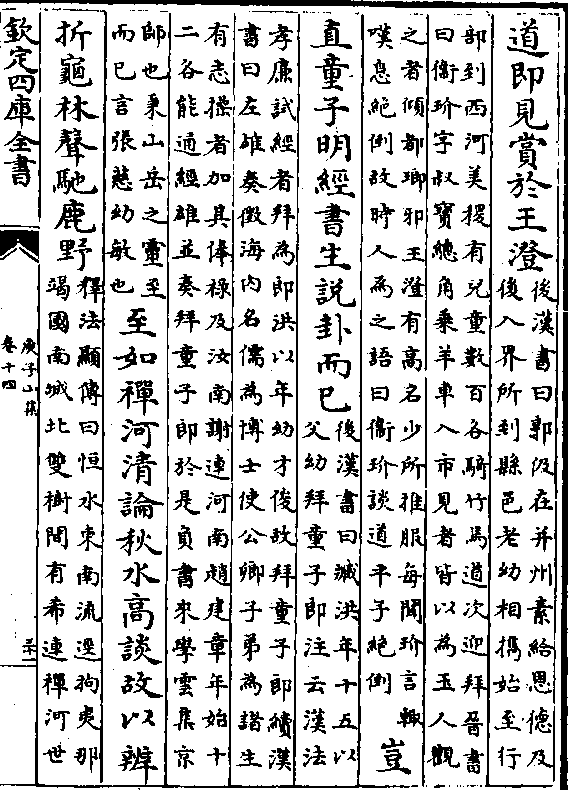 道即見賞於王澄
後漢書曰郭伋在并州素給恩德及
後入界所到縣邑老幼相攜始至行
部到西河美稷有兒童數百各騎竹馬道次迎拜晉書
曰衛玠字叔寶總角乘羊車入市見者皆以為玉人觀
之者傾都瑯邪王澄有高名少所推服每聞玠言輒
嘆息絕倒故時人為之語曰衛玠談道平子絕倒
豈
直童子明經書生說卦而已
後漢書曰臧洪年十五以
父幼拜童子即注云漢法
孝廉試經者拜為即洪以年幼才俊故拜童子即續漢
書曰左雄奏徵海內名儒為博士使公卿子弟為諸生
有志操者加其俸祿及汝南謝連河南趙建章年始十
二各能通經雄並奏拜童子即於是負書來學雲集京
師也秉山岳之靈至
而已言張慈幼敏也
至如禪河清論秋水高談故以辨
折龜林聲馳鹿野
釋法顯傳曰恒水東南流逕拘夷那
竭國南城北雙樹間有希連禪河世
欽定四庫全書
庾子山集
卷十四